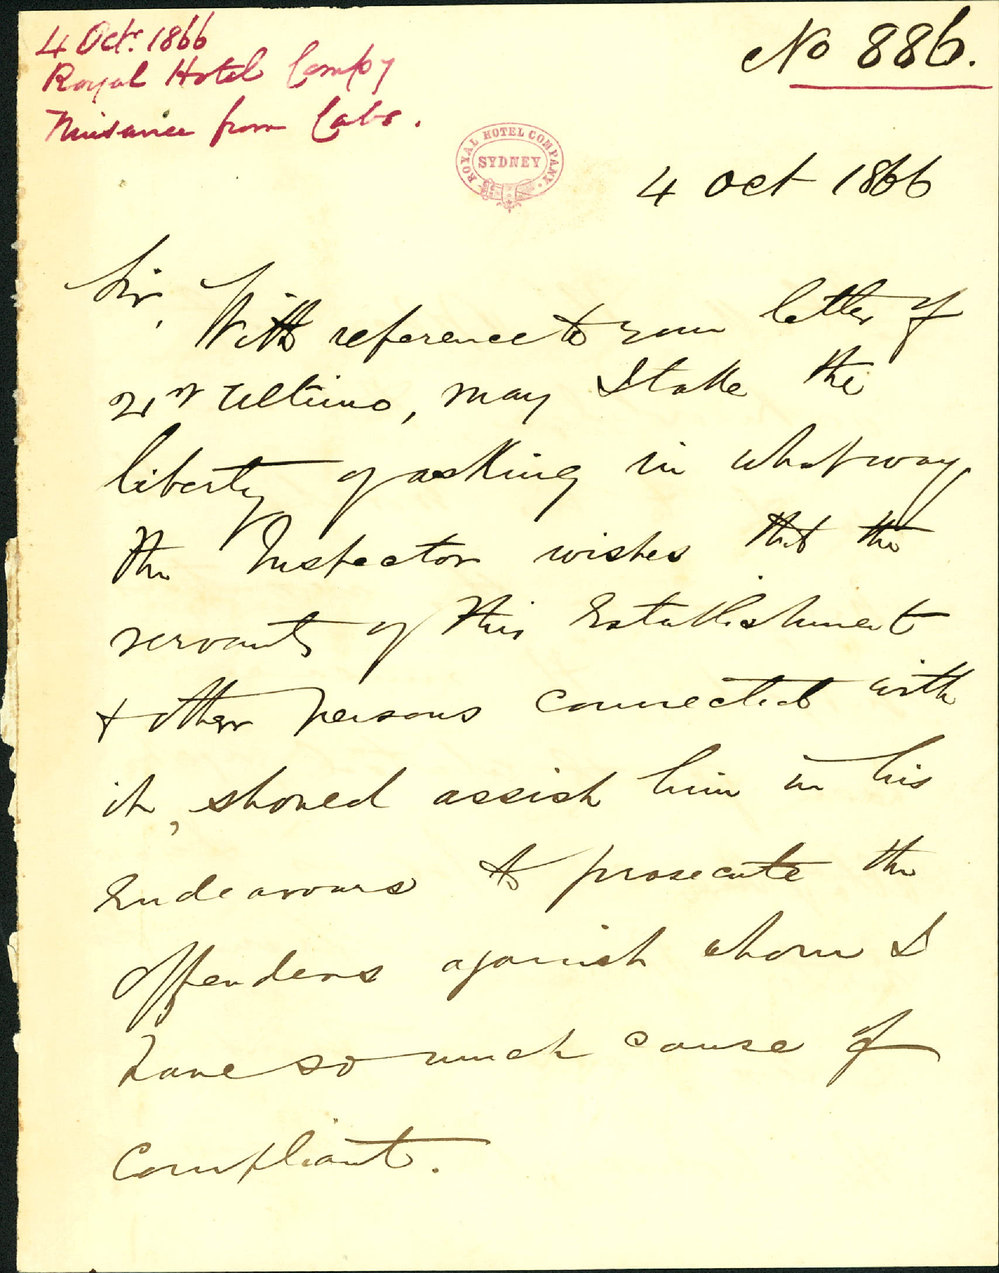 4 Oct. 1866
Royal Hotel Compy
Nuisance from Cabs.
No 886.
ROYAL HOTEL COMPANY
SYDNEY
4 Oct 1866
Sir,
With reference to your letter of
21st Ultimo, may I take the
liberty of asking in what way
the Inspector wishes that the
servants of this Establishment
& other persons connected with
it, should assist him in his
Endeavours to prosecute the
offenders against whom I
have so much cause of
compliant.